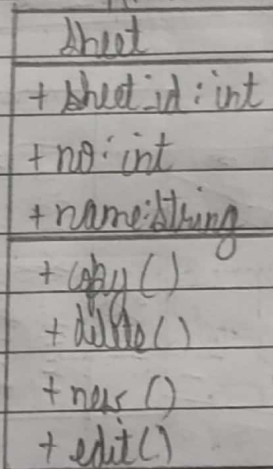 sheet
+ sheet_id : int
+ no : int
+ name : string
+ copy ()
+ delete ()
+ new ()
+ edit ()